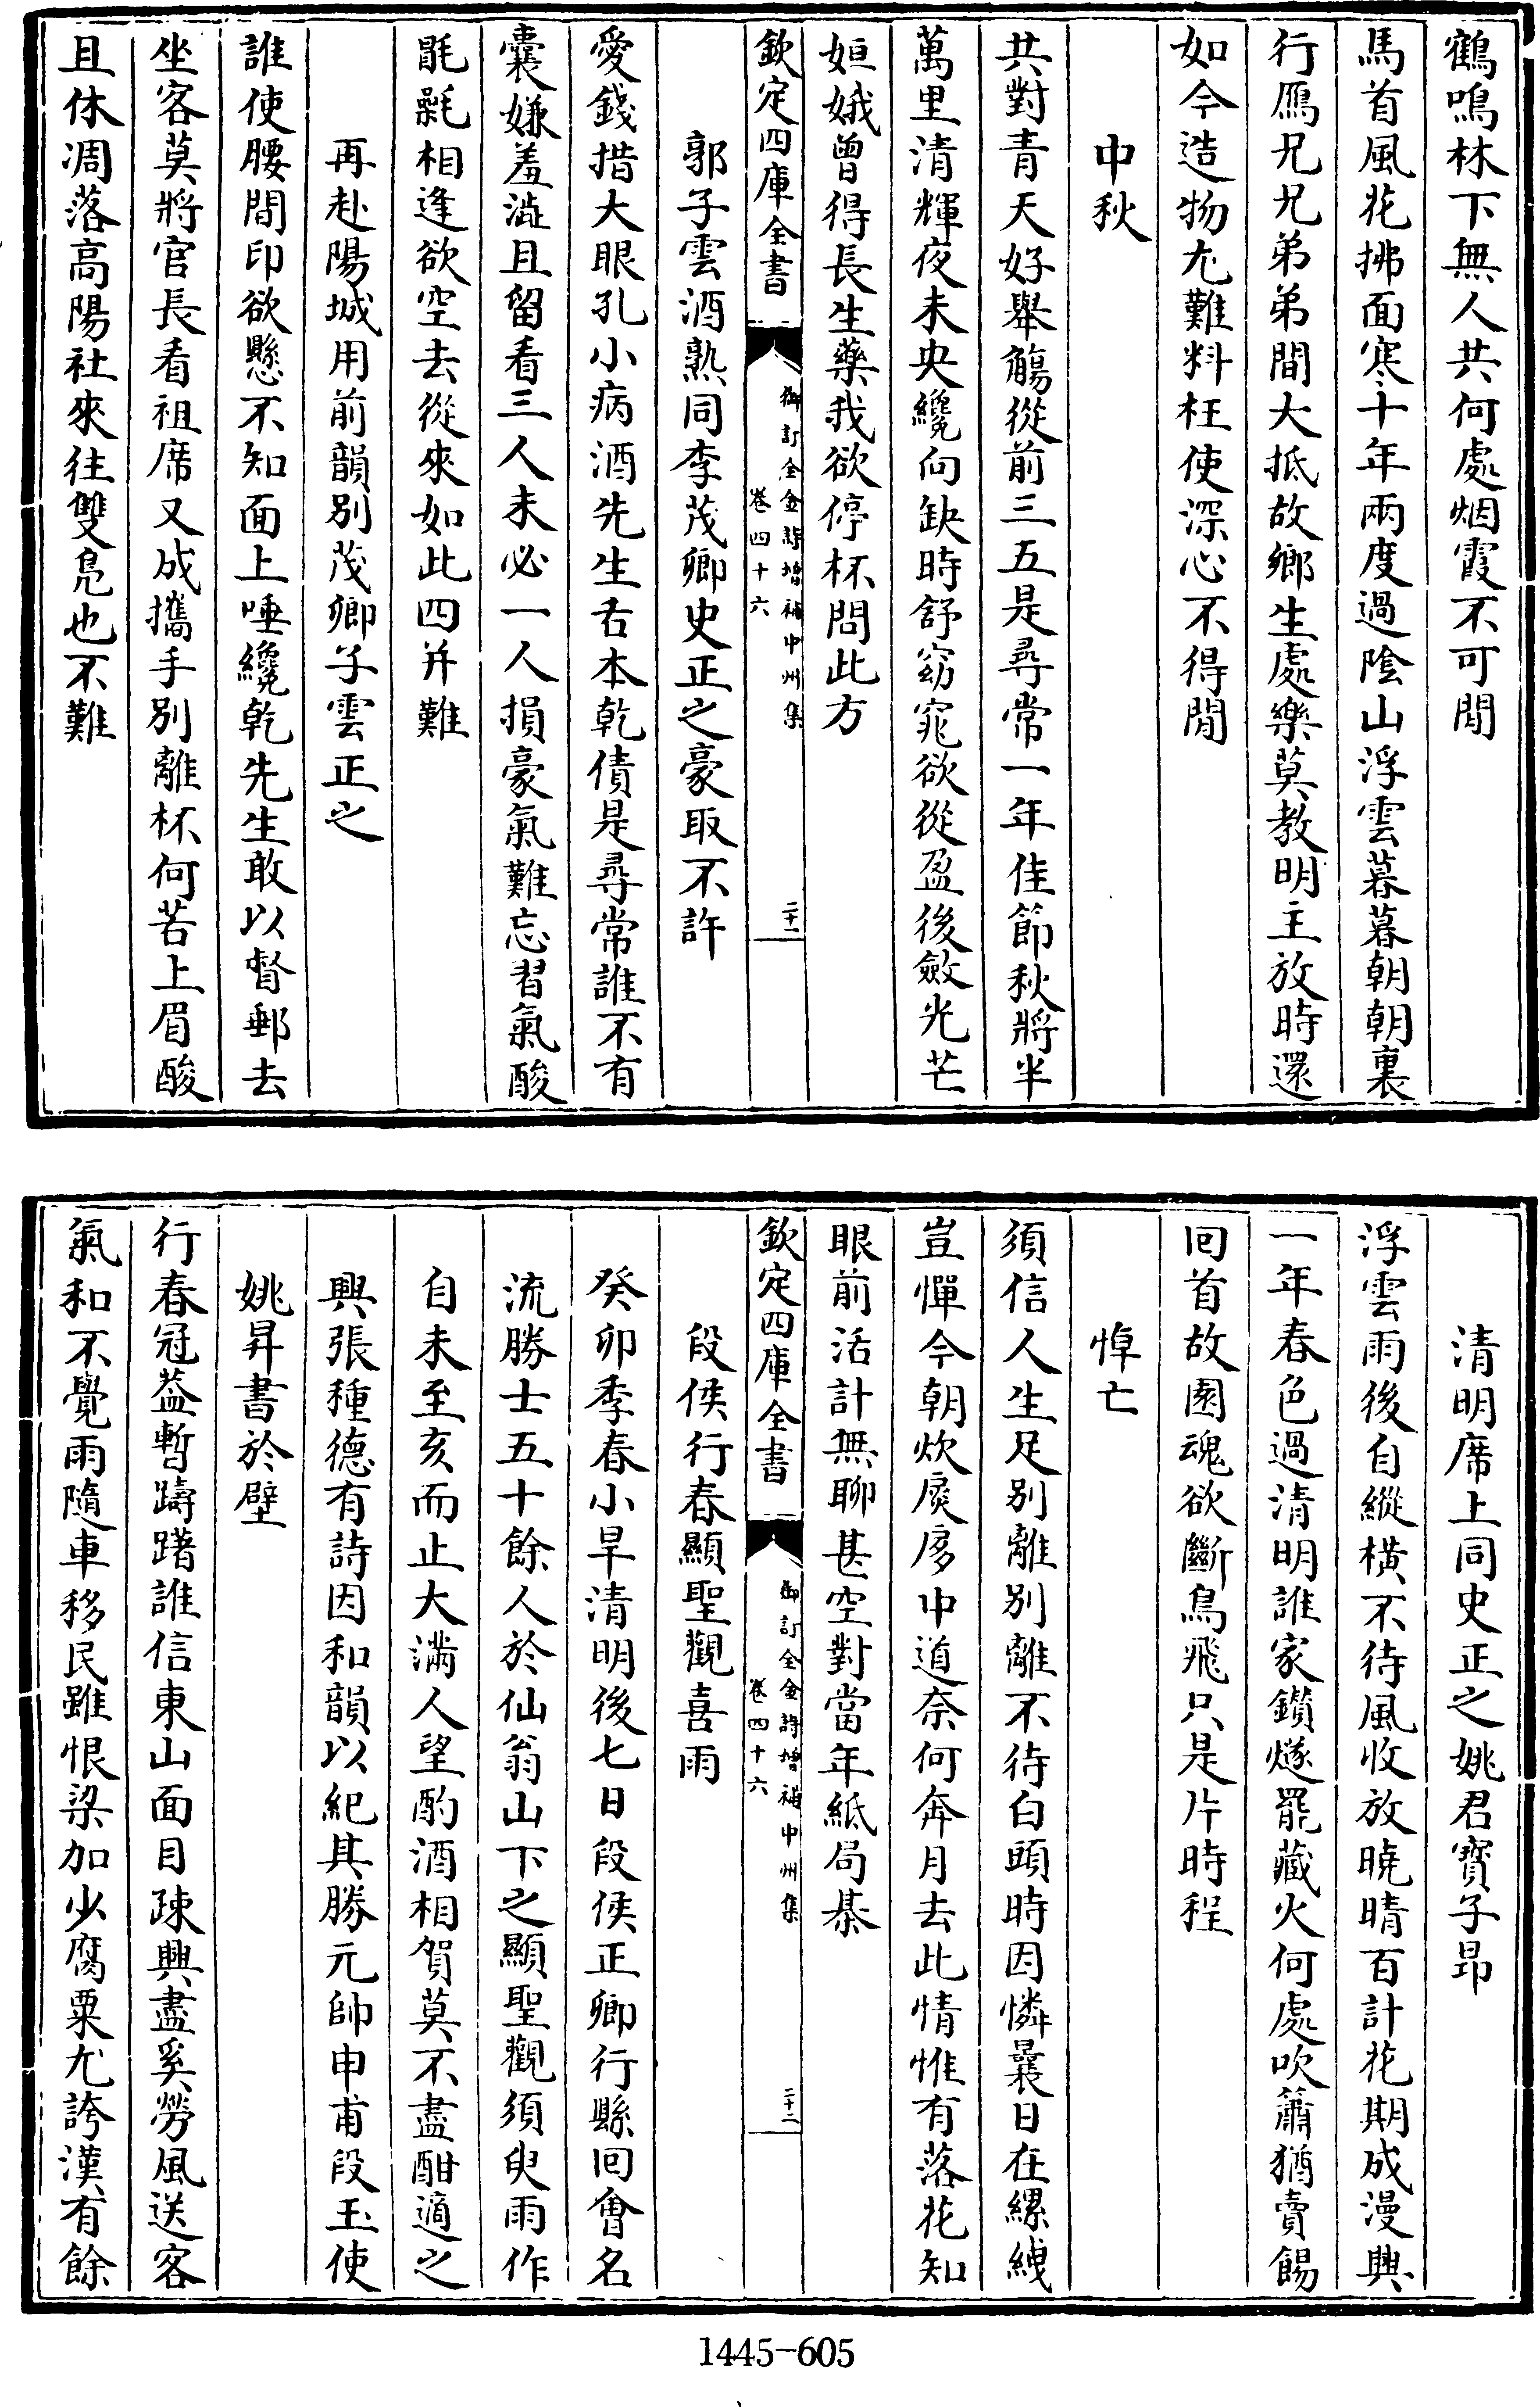 鶴鳴林下無人共何處烟霞不可閒
馬首風花拂面寒十年兩度過陰山浮雲暮暮朝朝裏
行鴈兄兄弟弟間大抵故鄉生處樂莫教明主放時還
如今造物尤難料枉使深心不得閒
中秋
共對青天好舉觴從前三五是尋常一年佳節秋將半
萬里清輝夜未央纔向缺時舒窈窕欲從盈後斂光芒
姮娥曾得長生藥我欲停杯問此方
欽定四庫全書
御訂全金詩增補中州集
卷四十六
二十一
郭子雲酒熟同李茂卿史正之豪取不許
愛錢措大眼孔小病酒先生舌本乾債是尋常誰不有
囊嫌羞澁且留看三人未必一人損豪氣難忘習氣酸
毷氉相逢欲空去從來如此四并難
再赴陽城用前韻別茂卿子雲正之
誰使腰間印欲懸不知面上唾纔乾先生敢以督郵去
坐客莫將官長看祖席又成攜手別離杯何苦上眉酸
且休凋落高陽社來往雙鳧也不難
清明席上同史正之姚君寶子昂
浮雲雨後自縱橫不待風收放曉晴百計花期成漫興
一年春色過清明誰家鑽燧罷藏火何處吹簫猶賣餳
回首故園魂欲斷鳥飛只是片時程
悼亡
須信人生足別離別離不待白頭時因憐曩日在縲絏
豈憚今朝炊扊扅中道奈何奔月去此情惟有落花知
眼前活計無聊甚空對當年紙局棊
欽定四庫全書
御訂全金詩增補中州集
卷四十六
二十二
段侯行春顯聖觀喜雨
癸卯季春小旱清明後七日段侯正卿行縣回會名
流勝士五十餘人於仙翁山下之顯聖觀須臾雨作
自未至亥而止大滿人望酌酒相賀莫不盡酣適之
興張種德有詩因和韻以紀其勝元帥申甫段玉使
姚昇書於壁
行春冠葢暫躊躇誰信東山面目疎興盡奚勞風送客
氣和不覺雨隨車移民雖恨梁加少腐粟尤誇漢有餘
1445-605